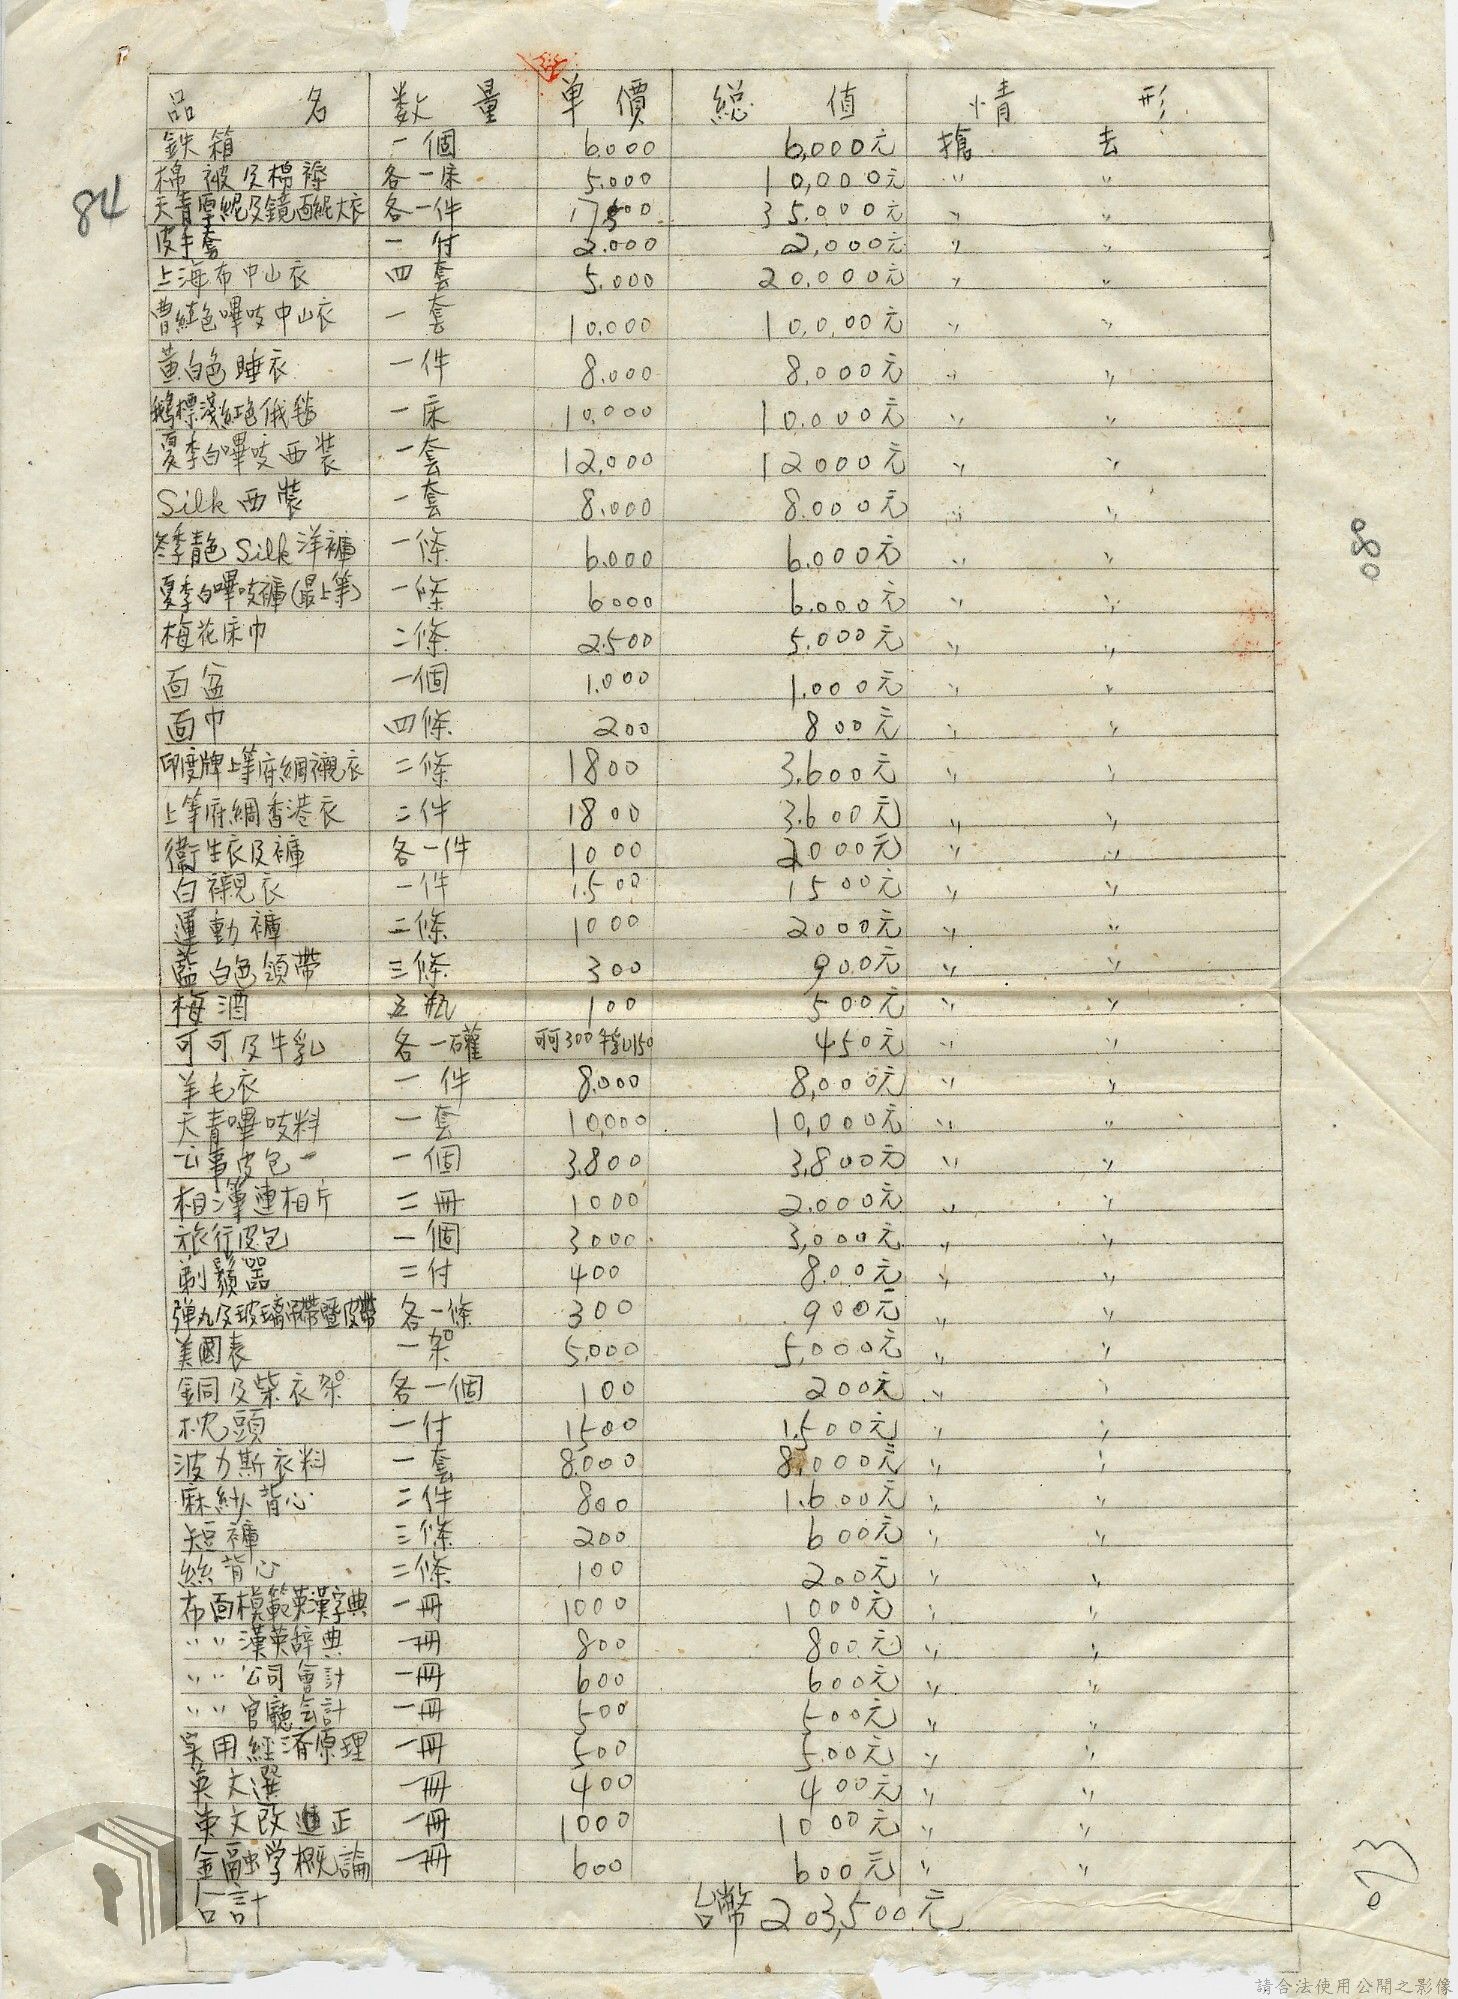 品名 数量 单價 総値 情形
鉄箱 一個 6.000 6,000元 搶去
棉被及棉褥 各一床 5.000 10,000元 〃 〃
天青厚絨及鏡面絨大衣 各一件 17500 35.000元 〃 〃
皮手套 一付 2.000 2,000元 〃 〃
上海布中山衣 四套 5.000 20.000元 〃 〃
曹紅色嗶吱中山衣 一套 10.000 10,000元 〃 〃
黃白色睡衣 一件 8.000 8.000元 〃 〃
鵝標淺紅色俄毡 一床 10.000 10.000元 〃 〃
夏季白嗶吱西裝 一套 12,000 12000元 〃 〃
Silk西裝 一套 8.000 8.000元 〃 〃
冬季青色Silk洋褲 一條 6.000 6.000元 〃 〃
夏季白嗶吱褲(最上等) 一條 6000 6.000元 〃 〃
梅花床巾 二條 2.500 5.000元 〃 〃
面盆 一個 1.000 1.000元 〃 〃
面巾 四條 200 800元 〃 〃
印度牌上等府綢襯衣 二條 1800 3.600元 〃 〃
上等府綢香港衣 二件 1800 3.600元 〃 〃
衛生衣及褲 各一件 1000 2000元 〃 〃
白襯衣 一件 1.500 1500元 〃 〃
運動褲 二條 1000 2000元 〃 〃
藍白色領帶 三條 300 900元 〃 〃
梅酒 五瓶 100 500元 〃 〃
可可及牛乳 各一礶 可可300牛乳150 450元 〃 〃
羊毛衣 一件 8.000 8,000元 〃 〃
天青嗶吱料 一套 10,000 10,000元 〃 〃
公事皮包 一個 3.800 3,800元 〃 〃
相簿連相片 二冊 1000 2.000元 〃 〃
旅行皮包 一個 3000 3,000元 〃 〃
剃鬚器 二付 400 800元 〃 〃
弹丸及玻璃吊帶暨皮帶 各一條 300 900元 〃 〃
美國表 一架 5,000 5,000元 〃 〃
銅及柴衣架 各一個 100 200元 〃 〃
枕頭 一付 1500 1.500元 〃 〃
波力斯衣料 一套 8.000 8,000元 〃 〃
麻紗背心 二件 800 1.600元 〃 〃
短褲 三條 200 600元 〃 〃
絲背心 二條 100 200元 〃 〃
布面模範英漢字典 一冊 1000 1000元 〃 〃
〃〃漢英辞典 一冊 800 800元 〃 〃
〃〃公司會計 一冊 600 600元 〃 〃
〃〃官廳会計 一冊 500 500元 〃 〃
实用經済原理 一冊 500 500元 〃 〃
英文選 一冊 400 400元 〃 〃
英文改進正 一冊 1000 1000元 〃 〃
金融学概論 一冊 600 600元 〃 〃
合計 台幣203,500元
84
80
073
請合法使用公開之影像